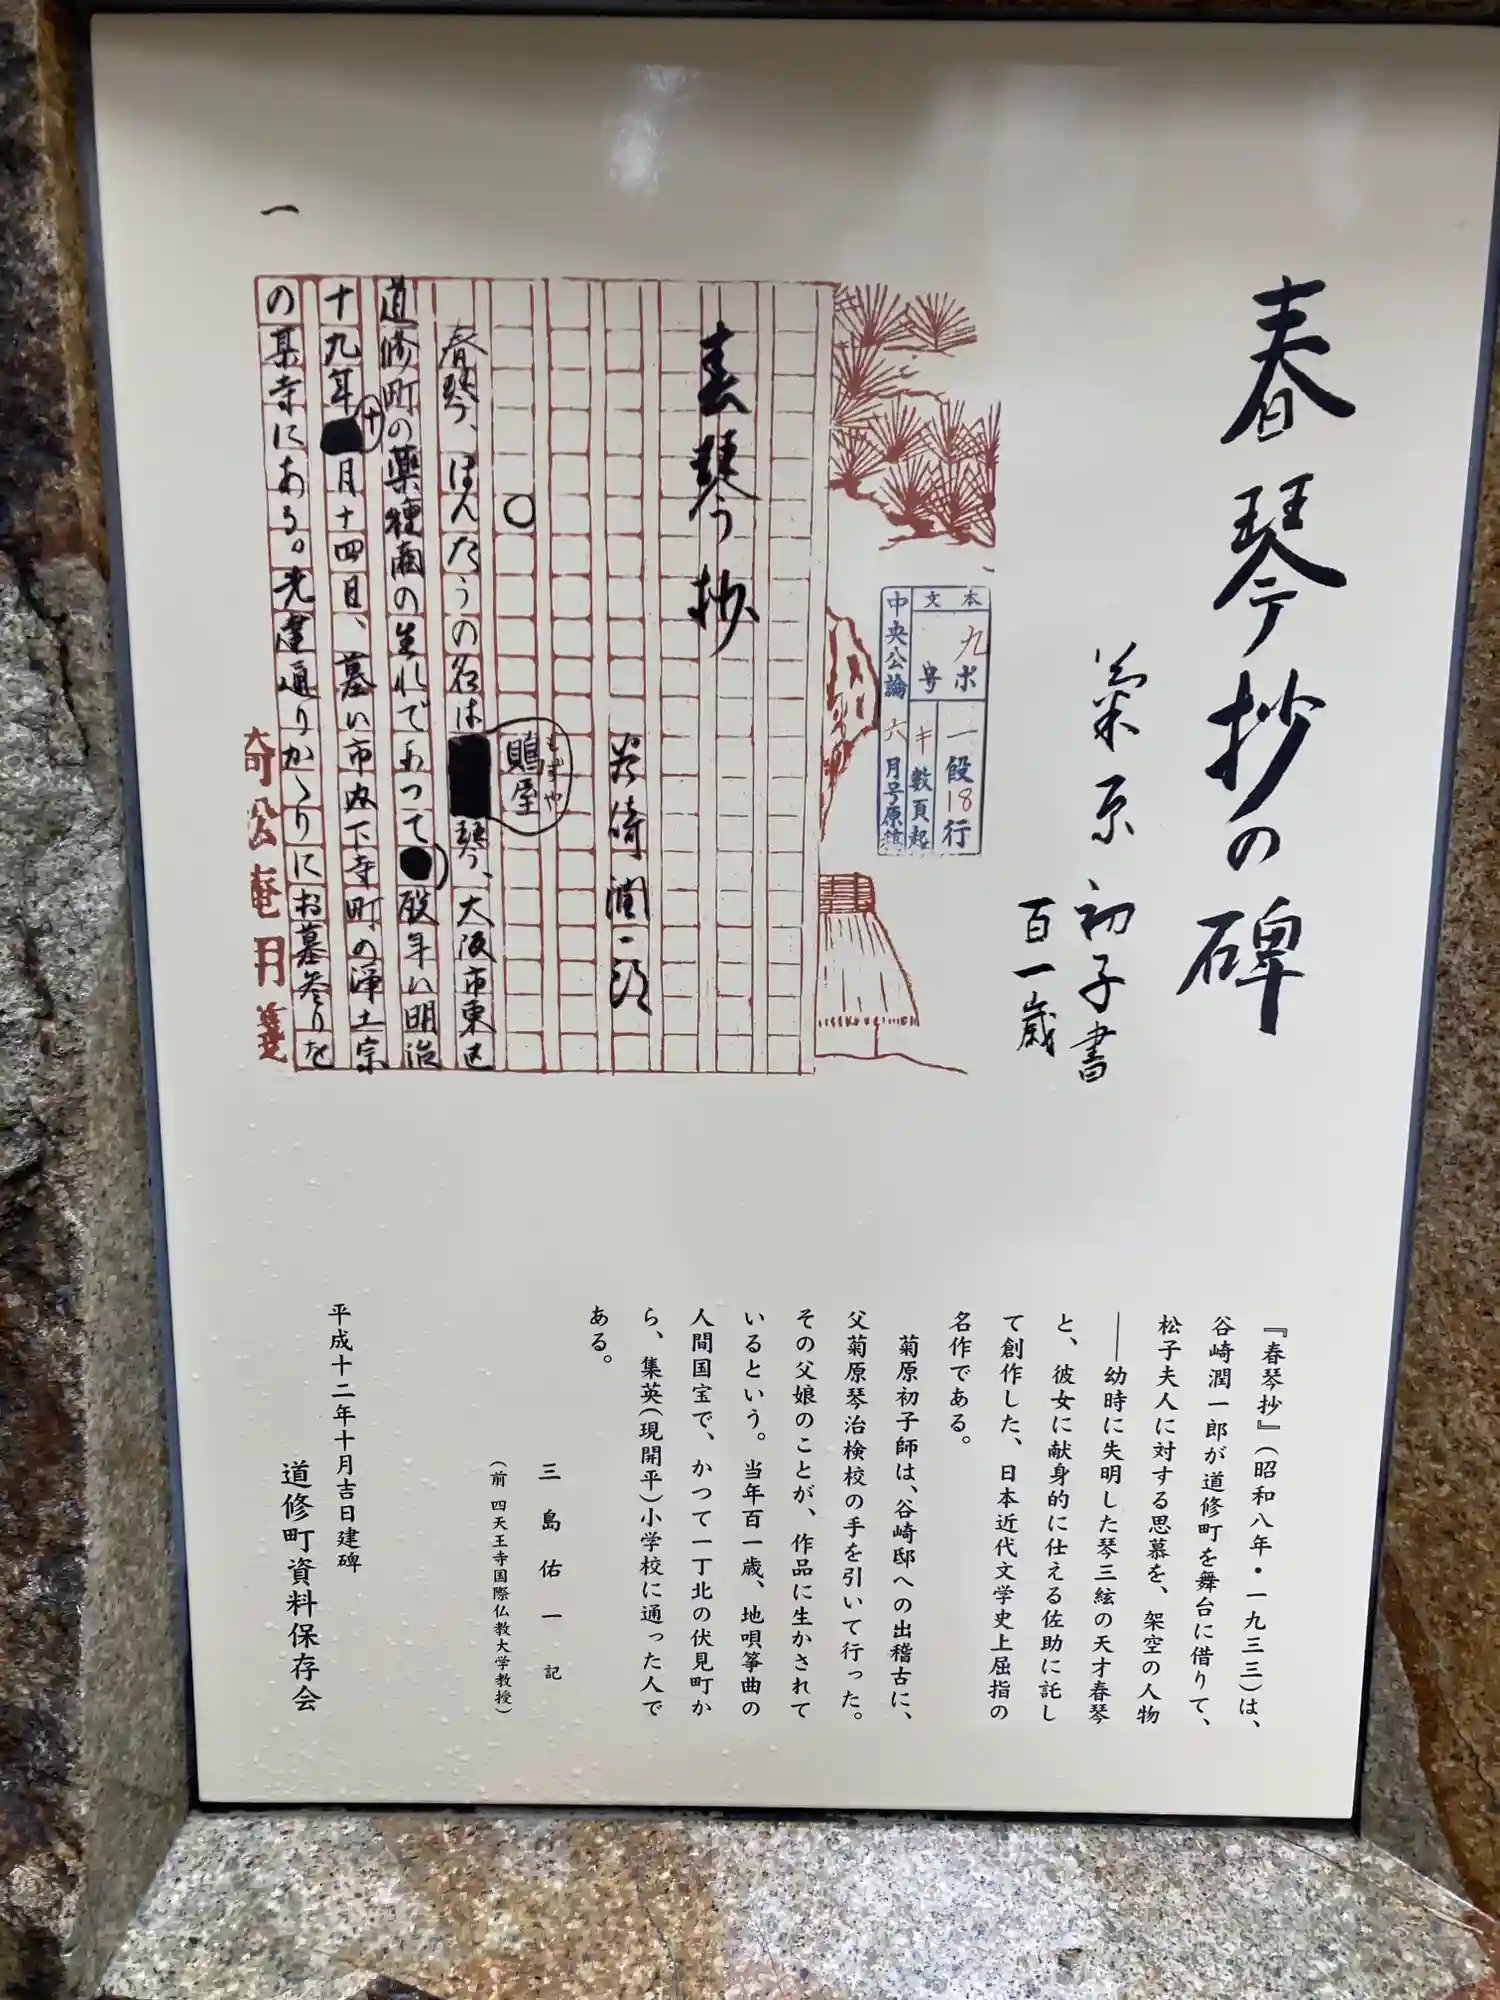 春琴抄の碑
菊原初子書
百一歳
本文
九ポ
号
一段18行
キ数頁起
中央公論 六月号原稿
春琴抄
谷崎潤一郎
〇
もずや
鵙屋
春琴、ほんたうの名は琴、大阪市東区
道修町の薬種商の生れであつて歿年は明治
十九年十月十四日、墓は市内下寺町の浄土宗
の某寺にある。先達通りかゝりにお墓参りを
一
倚松庵用箋
『春琴抄』(昭和八年・一九三三)は、
谷崎潤一郎が道修町を舞台に借りて、
松子夫人に対する思慕を、架空の人物
――幼時に失明した琴三絃の天才春琴
と、彼女に献身的に仕える佐助に託し
て創作した、日本近代文学史上屈指の
名作である。
菊原初子師は、谷崎邸への出稽古に、
父菊原琴治検校の手を引いて行った。
その父娘のことが、作品に生かされて
いるという。当年百一歳、地唄箏曲の
人間国宝で、かつて一丁北の伏見町か
ら、集英(現開平)小学校に通った人で
ある。
三島佑一 記
(前 四天王寺国際仏教大学教授)
平成十二年十月吉日建碑
道修町資料保存会